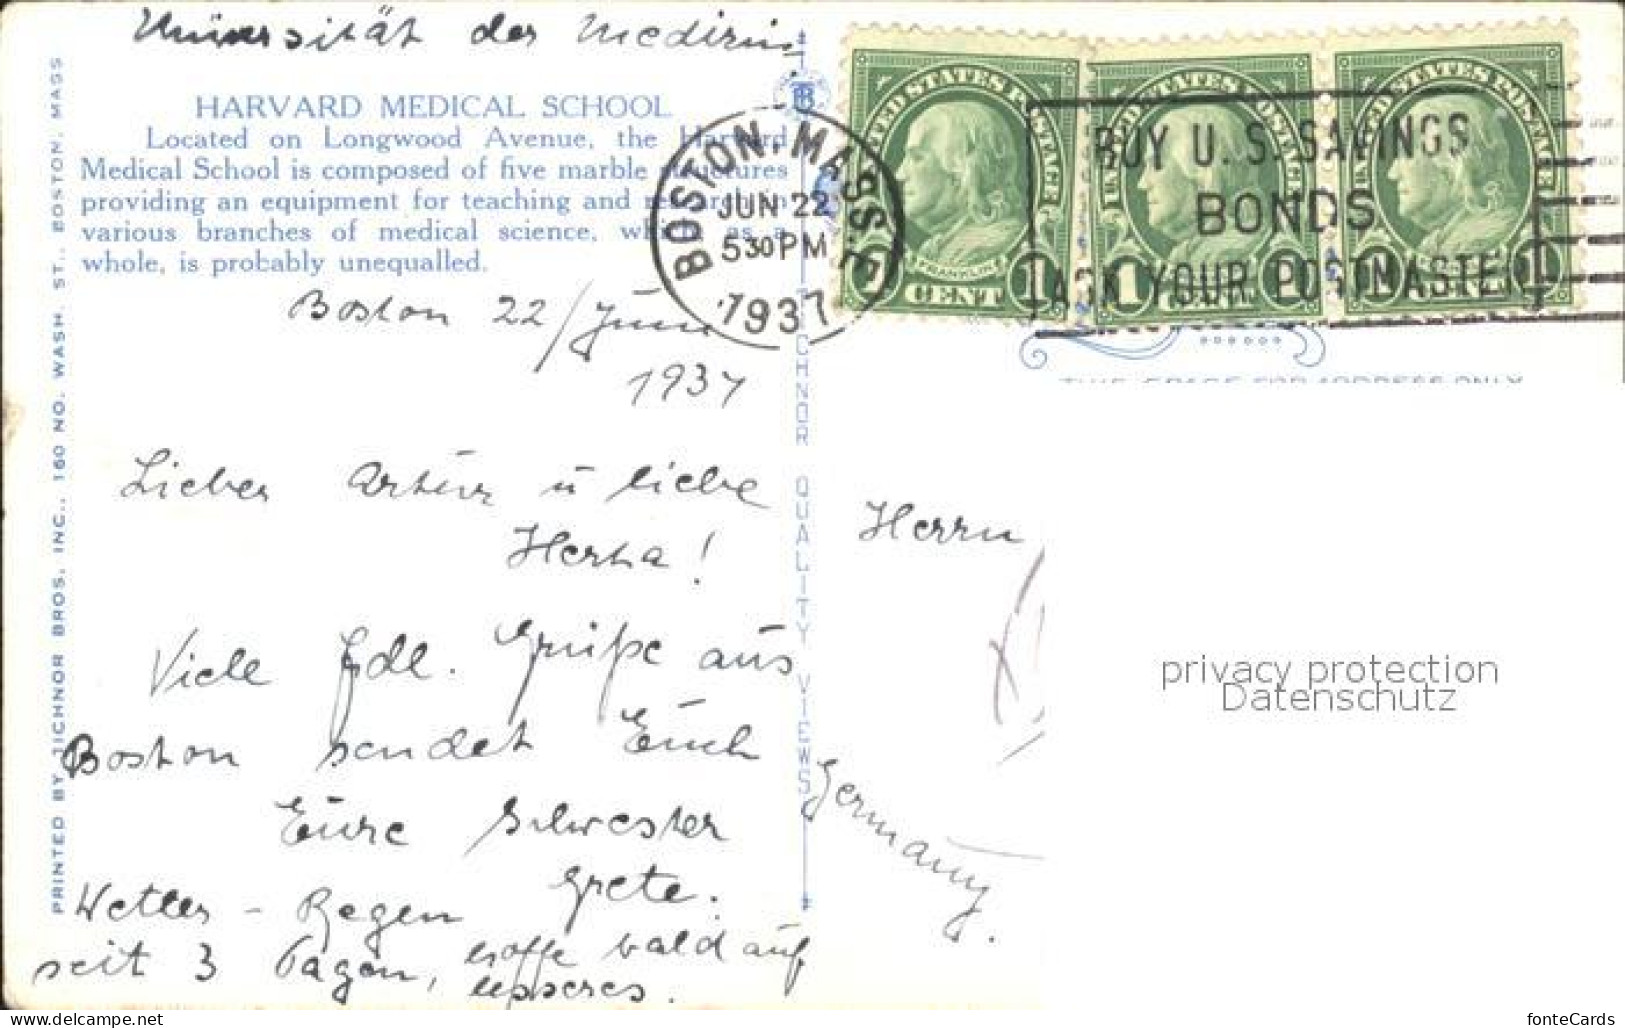 Universität der Medizin
HARVARD MEDICAL SCHOOL
Located on Longwood Avenue, the Harvard
Medical School is composed of five marble structures
providing an equipment for teaching and research in
various branches of medical science, which as a
whole, is probably unequalled.
Boston 22/Juni
1937
Lieber Artur u liebe
Herta!
Viele hdl. Grüße aus
Boston sendet Euch
Eure Schwester
Grete.
Wetter - Regen
seit 3 Tagen, hoffe bald auf
besseres.
PRINTED BY TICHNOR BROS. INC., 160 NO. WASH. ST., BOSTON, MASS
TICHNOR QUALITY VIEWS
BOSTON, MASS.
JUN 22
5 30 PM
1937
BUY U.S. SAVINGS
BONDS
ASK YOUR POSTMASTER
UNITED STATES POSTAGE
FRANKLIN
1 CENT 1
UNITED STATES POSTAGE
1 CENT 1
UNITED STATES POSTAGE
1 CENT 1
THIS SPACE FOR ADDRESS ONLY
Herrn
Germany.
privacy protection
Datenschutz
www.delcampe.net
fonteCards